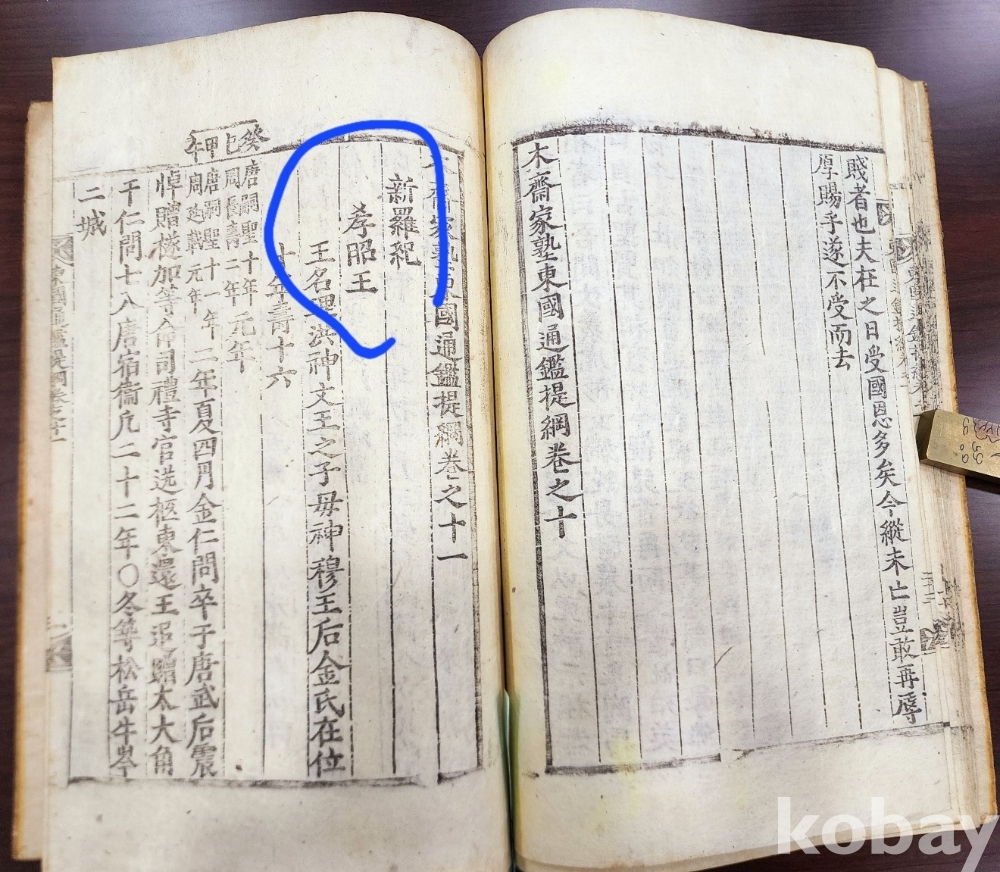 賤者也夫在之日受國恩多矣今縱未亡豈敢再辱
厚賜乎遂不受而去
木齋家塾東國通鑑提綱卷之十
木齋家塾東國通鑑提綱卷之十一
新羅紀
孝昭王
王名理洪神文王之子母神穆王后金氏在位
十年壽十六
癸巳
唐嗣聖十年
周長壽二年
元年
甲午
唐嗣聖十一年
周延載元年
二年夏四月金仁問卒于唐武后震
悼贈襚加等命司禮寺官送柩東還王追贈太大角
干仁問十八唐宿衞凡二十二年○冬等松岳牛岑
二城
kobay